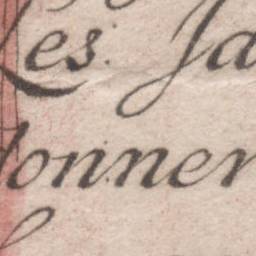 Les Ja
donner